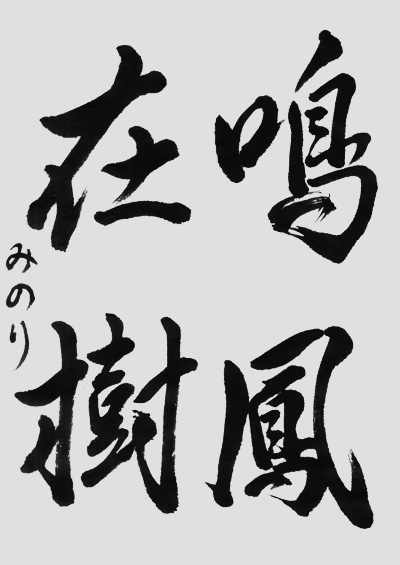 鳴鳳
在樹
みのり